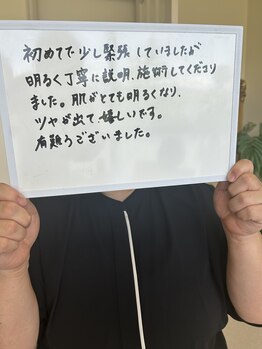 初めてで少し緊張していましたが
明るく丁寧に説明、施術してくださり
ました。肌がとても明るくなり、
ツヤが出て嬉しいです。
有難うございました。